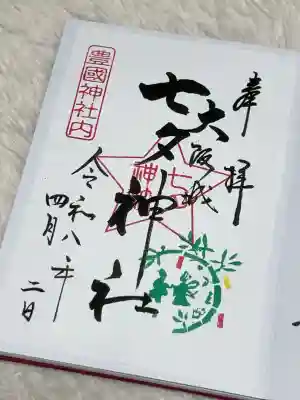 奉拝
大阪城
七夕神社
豊國神社内
令和八年
四月
二日